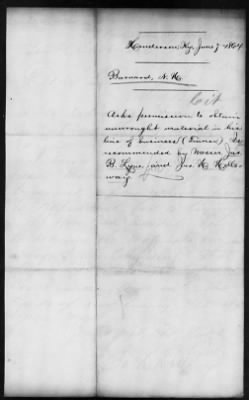 Henderson Ky. June 7 1864
Barnard, N. H.
Cit
Asks permission to obtain
unwrought material in his
line of business (Tinner) Is
recommended by Messrs Jas
B. Lyne and Jas. H. Hollo-
way